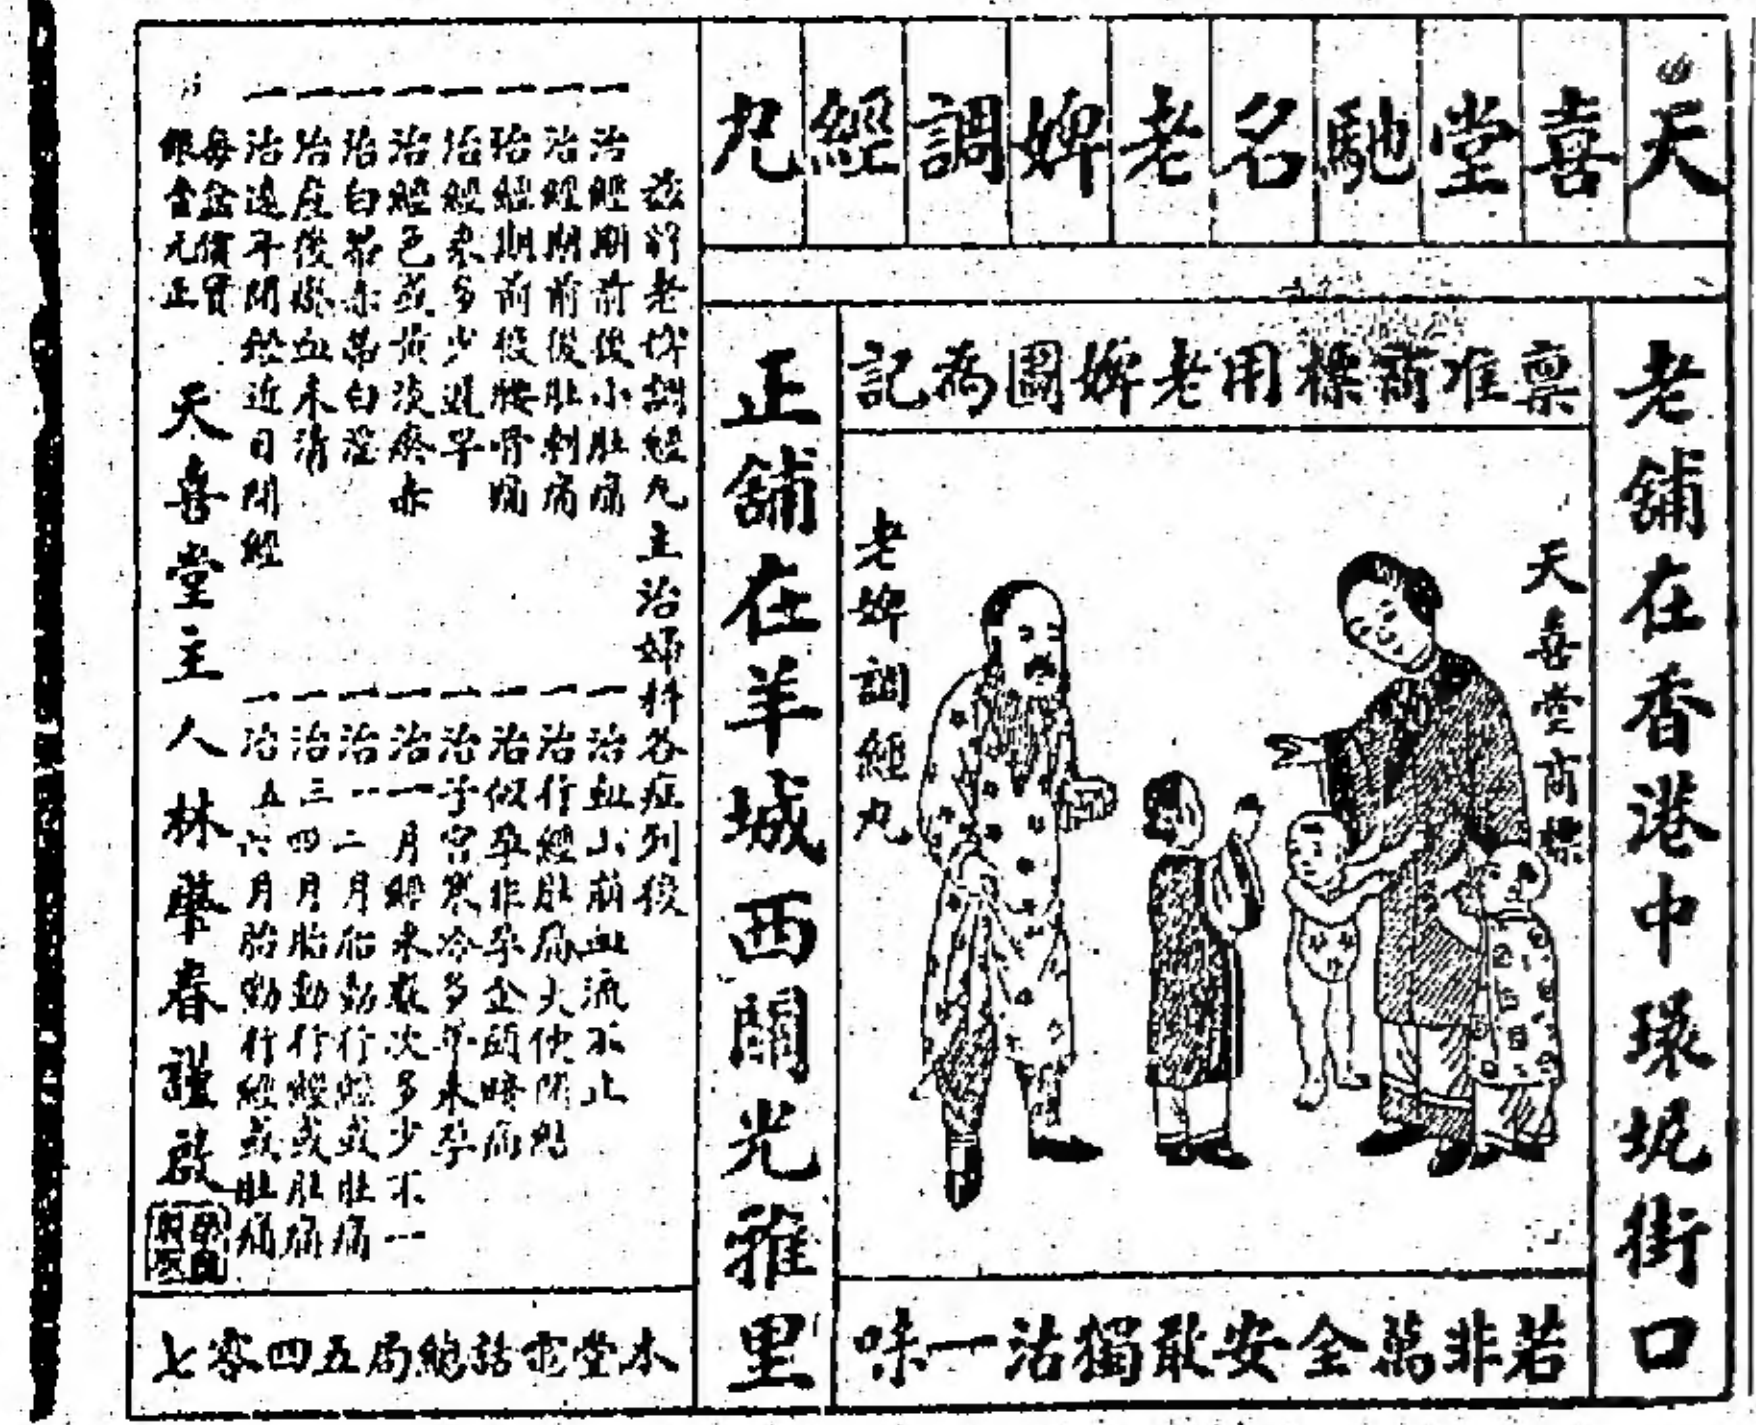 天喜堂馳名老婢調經丸
老舖在香港中環坭街口
稟准商標用老婢圖為記
天喜堂商標
老婢調經丸
若非萬全安敢獨沽一味
正舖在羊城西關光雅里
老婢調經丸主治婦科各症列後
一治經期前後小肚痛
一治經期前後肚刺痛
一治經期前後腰骨痛
一治經來多少遲早
一治經色或黃淡瘀赤
一治白帶赤帶白淫
一治產後瘀血未清
一治遠年閉經近日閉經
一治血山崩血流不止
一治行經肚痛大便閉結
一治似孕非孕企頭暗病
一治子宮寒冷多年未孕
一治一月經來數次多少不一
一治一二月胎動行經或肚痛
一治三四月胎動行經或肚痛
一治五六月胎動行經或肚痛
每盒價實
銀壹元正
天喜堂主人林肇春謹啟
本堂電話總局五四零七